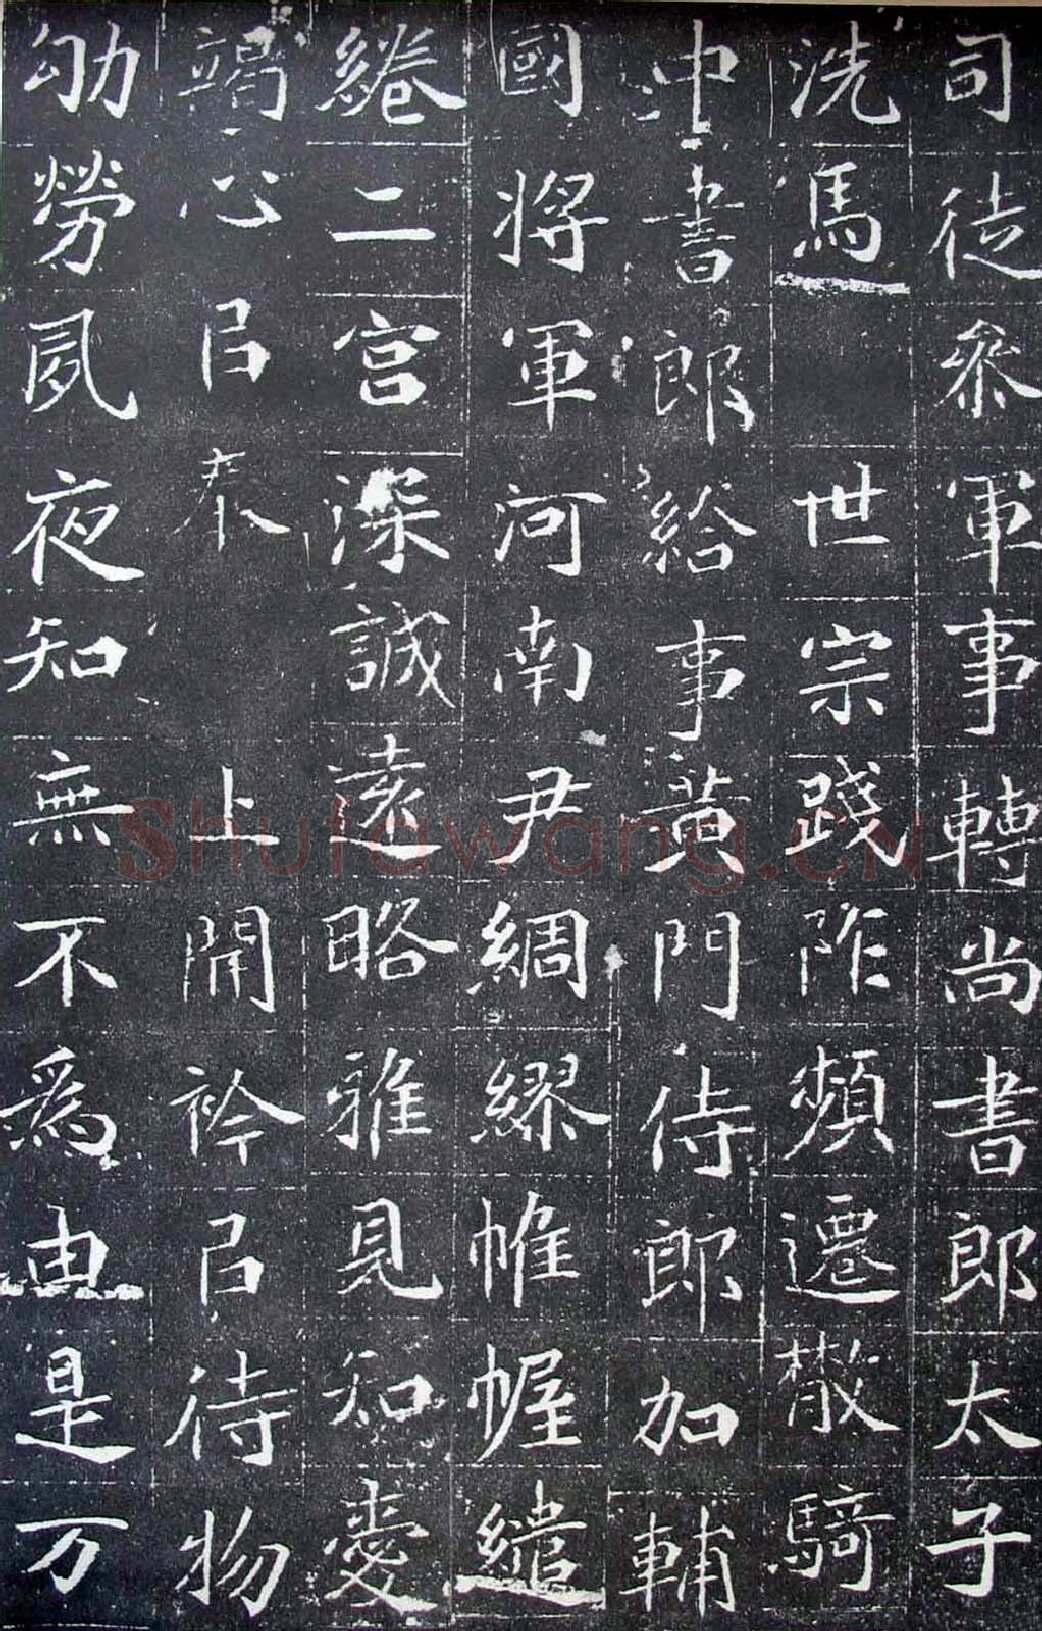 司徒參軍事轉尚書郎太子
洗馬 世宗踐阼頻遷散騎
中書郎給事黃門侍郎加輔
國將軍河南尹綢繆帷幄繾
綣二宮深誠遠略雅見知愛
竭心㠯奉 上開衿㠯待物
劬勞夙夜知無不爲由是万
Shufawang.CN